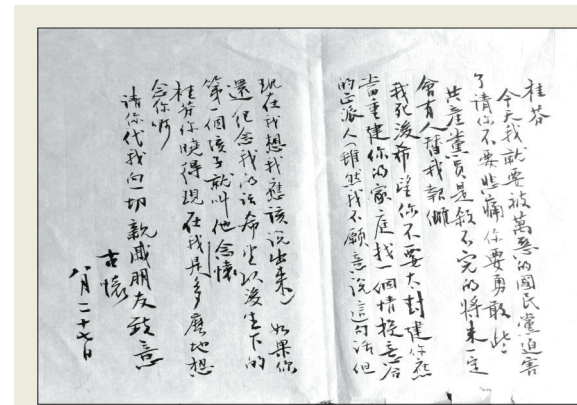 桂芬
今天我就要被萬惡的國民黨迫害
了請你不要悲痛你要勇敢些
共產黨員是殺不完的將來一定
會有人替我報
我死後希望你不要太封建你應
當重建你的家庭找一個情投意合
的正派人(雖然我不願意說這句話但
現在我想我應該說出來) 如果你
還紀念我的話希望以後生下的
第一個孩子就叫他念懷
桂芬你曉得現在我是多麼地想
念你啊
請你代我向一切親戚朋友致意
古懷
八月二十七日